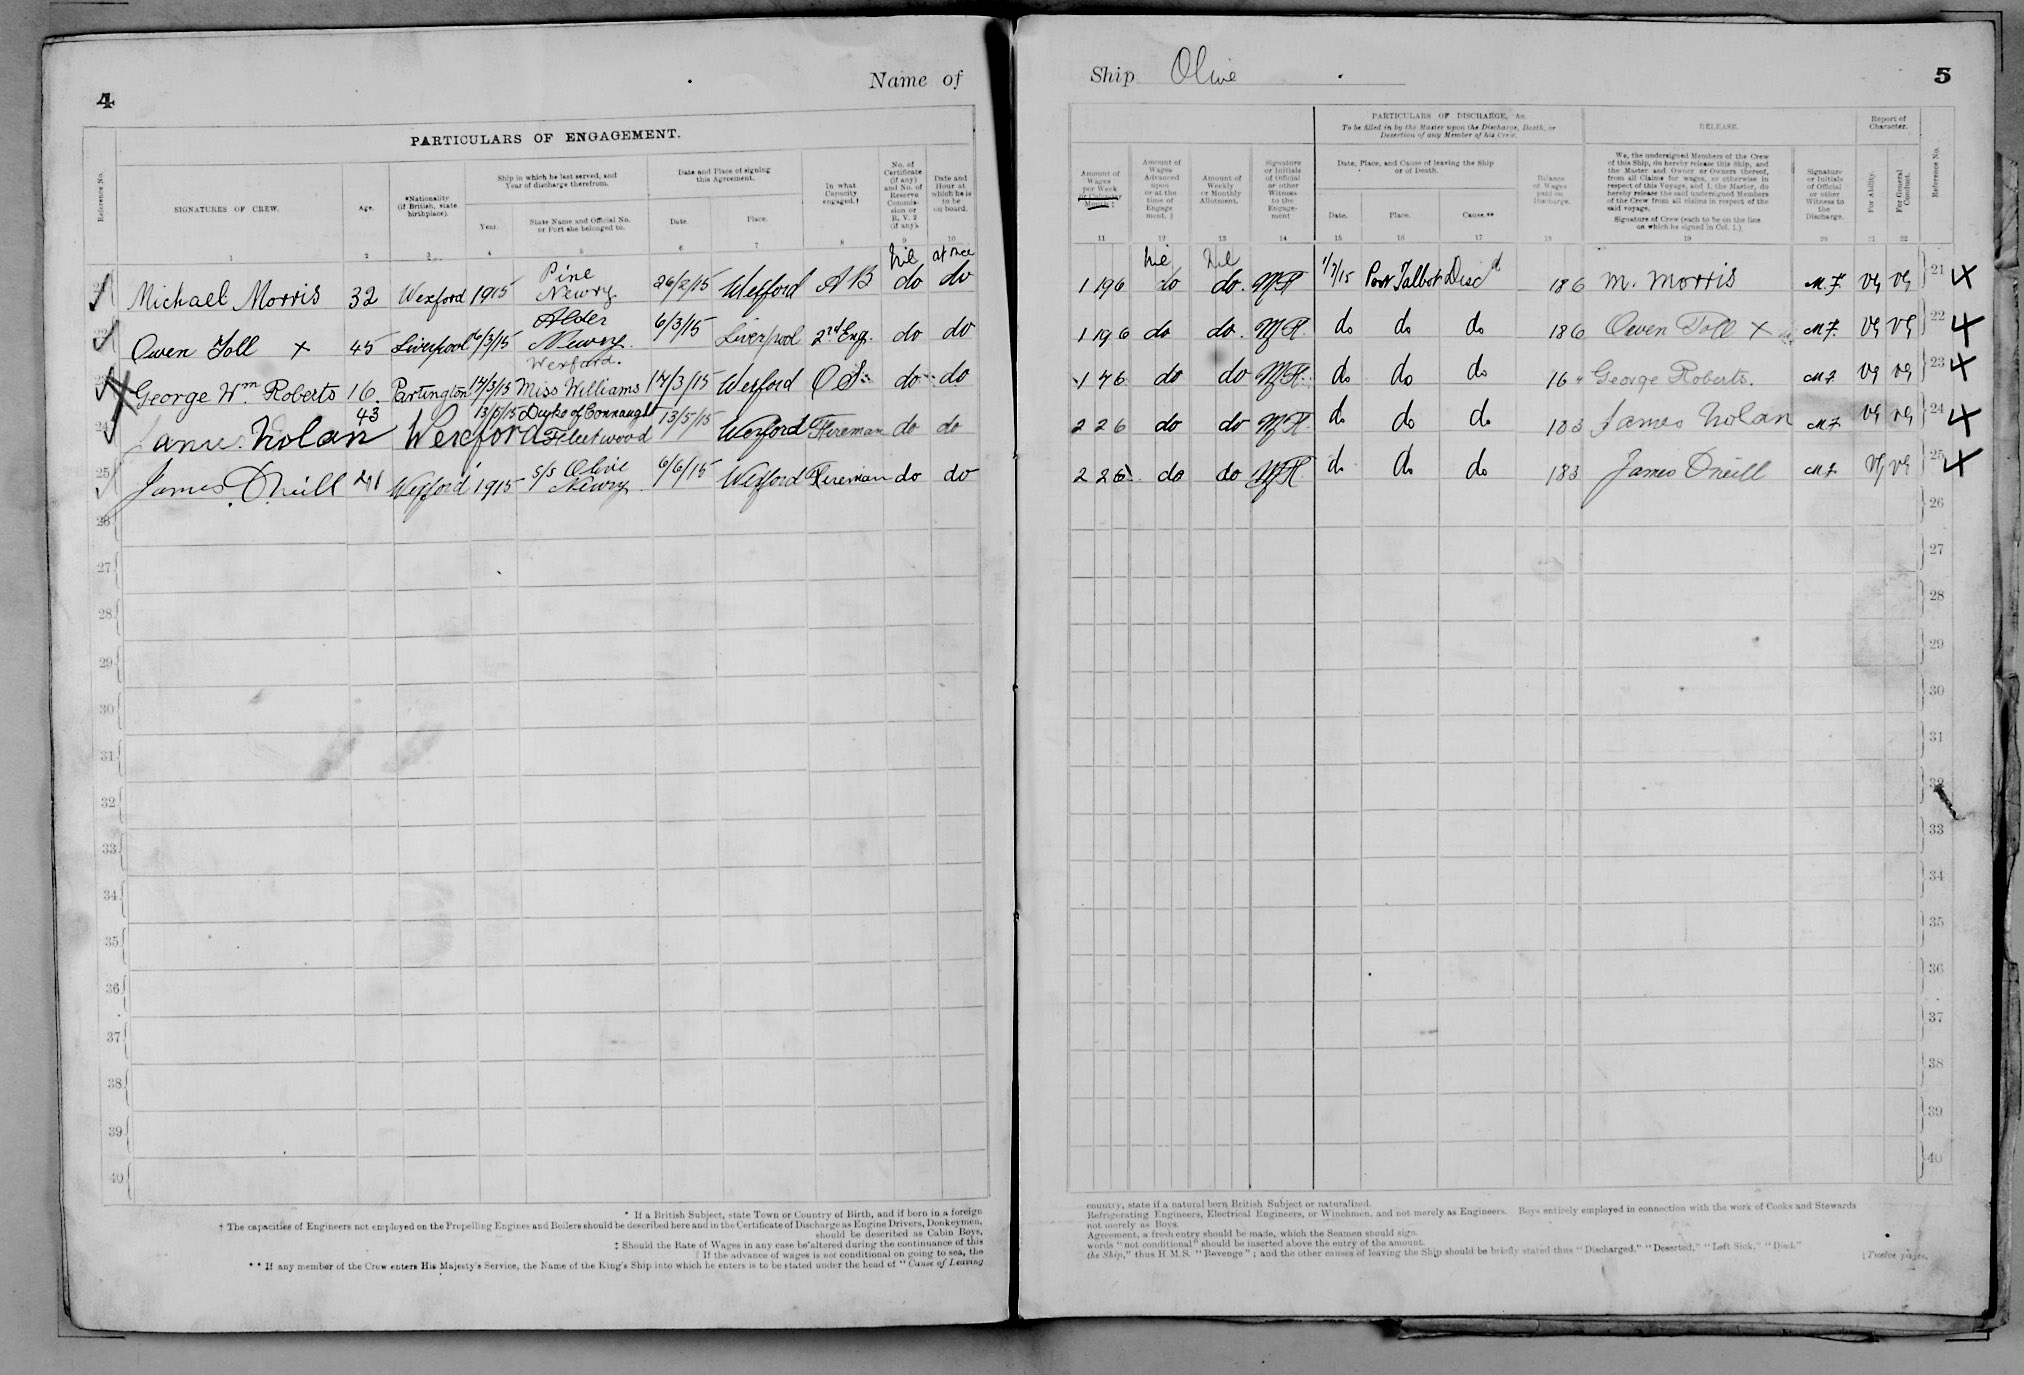 4
Name of
PARTICULARS OF ENGAGEMENT.
Reference No.
SIGNATURES OF CREW.
Age.
*Nationality (if British, state birthplace).
Ship in which he last served, and Year of discharge therefrom.
Year.
State Name and Official No. or Port she belonged to.
Date and Place of signing this Agreement.
Date.
Place.
In what Capacity engaged.†
No. of Certificate (if any) and No. of Reserve Commission or R. V. 2 (if any).
Date and Hour at which he is to be on board.
1 2 3 4 5 6 7 8 9 10
Nil at once
21 Michael Morris 32 Wexford 1915 Pine Newry 26/2/15 Wexford A B do do
22 Owen Toll x 45 Liverpool 6/3/15 Alder Newry. 6/3/15 Liverpool 2nd Eng. do do
23 George Wm Roberts 16. Partington 17/3/15 Wexford. Miss Williams 17/3/15 Wexford O S. do do
24 James Nolan 43 Wexford 13/5/15 Duke of Connaught Fleetwood 13/5/15 Wexford Fireman do do
25 James O'Neill 21 Wexford 1915 S/S Olive Newry 6/6/15 Wexford Fireman do do
26
27
28
29
30
31
32
33
34
35
36
37
38
39
40
* If a British Subject, state Town or Country of Birth, and if born in a foreign
† The capacities of Engineers not employed on the Propelling Engines and Boilers should be described here and in the Certificate of Discharge as Engine Drivers, Donkeymen,
should be described as Cabin Boys,
‡ Should the Rate of Wages in any case be altered during the continuance of this
If the advance of wages is not conditional on going to sea, the
** If any member of the Crew enters His Majesty's Service, the Name of the King's Ship into which he enters is to be stated under the head of "Cause of Leaving
Ship Olive
5
PARTICULARS OF DISCHARGE, &c.
To be filled in by the Master upon the Discharge, Death, or Desertion of any Member of his Crew.
RELEASE.
Report of Character.
Amount of Wages per Week or Calendar Month ‡
Amount of Wages Advanced upon or at the time of Engagement.
Amount of Weekly or Monthly Allotment.
Signature or Initials of Official or other Witness to the Engagement
Date, Place, and Cause of leaving the Ship or of Death.
Date.
Place.
Cause.**
Balance of Wages paid on Discharge.
We, the undersigned Members of the Crew of this Ship, do hereby release this Ship, and the Master and Owner or Owners thereof, from all Claims for wages, or otherwise in respect of this Voyage, and I, the Master, do hereby release the said undersigned Members of the Crew from all claims in respect of the said voyage.
Signature of Crew (each to be on the line on which he signed in Col. 1.)
Signature or Initials of Official or other Witness to the Discharge.
For Ability.
For General Conduct.
Reference No.
11 12 13 14 15 16 17 18 19 20 21 22
Nil Nil
1 19 6 do do. 1/7/15 Port Talbot Discd 18 6 M. Morris M.F. VG VG 21
1 19 6 do do. do do do 18 6 Owen Toll x M.F. VG VG 22
1 7 6 do do do do do 16 George Roberts. M.F. VG VG 23
2 2 6 do do do do do 18 3 James Nolan M.F. VG VG 24
2 2 6 do do do do do 18 3 James O'Neill M.F. VG VG 25
26
27
28
29
30
31
32
33
34
35
36
37
38
39
40
country, state if a natural born British Subject or naturalized.
Refrigerating Engineers, Electrical Engineers, or Winchmen, and not merely as Engineers. Boys entirely employed in connection with the work of Cooks and Stewards
not merely as Boys.
Agreement, a fresh entry should be made, which the Seamen should sign.
words "not conditional" should be inserted above the entry of the amount.
the Ship," thus H.M.S. "Revenge"; and the other causes of leaving the Ship should be briefly stated thus "Discharged," "Deserted," "Left Sick," "Died."
[Twelve pages.